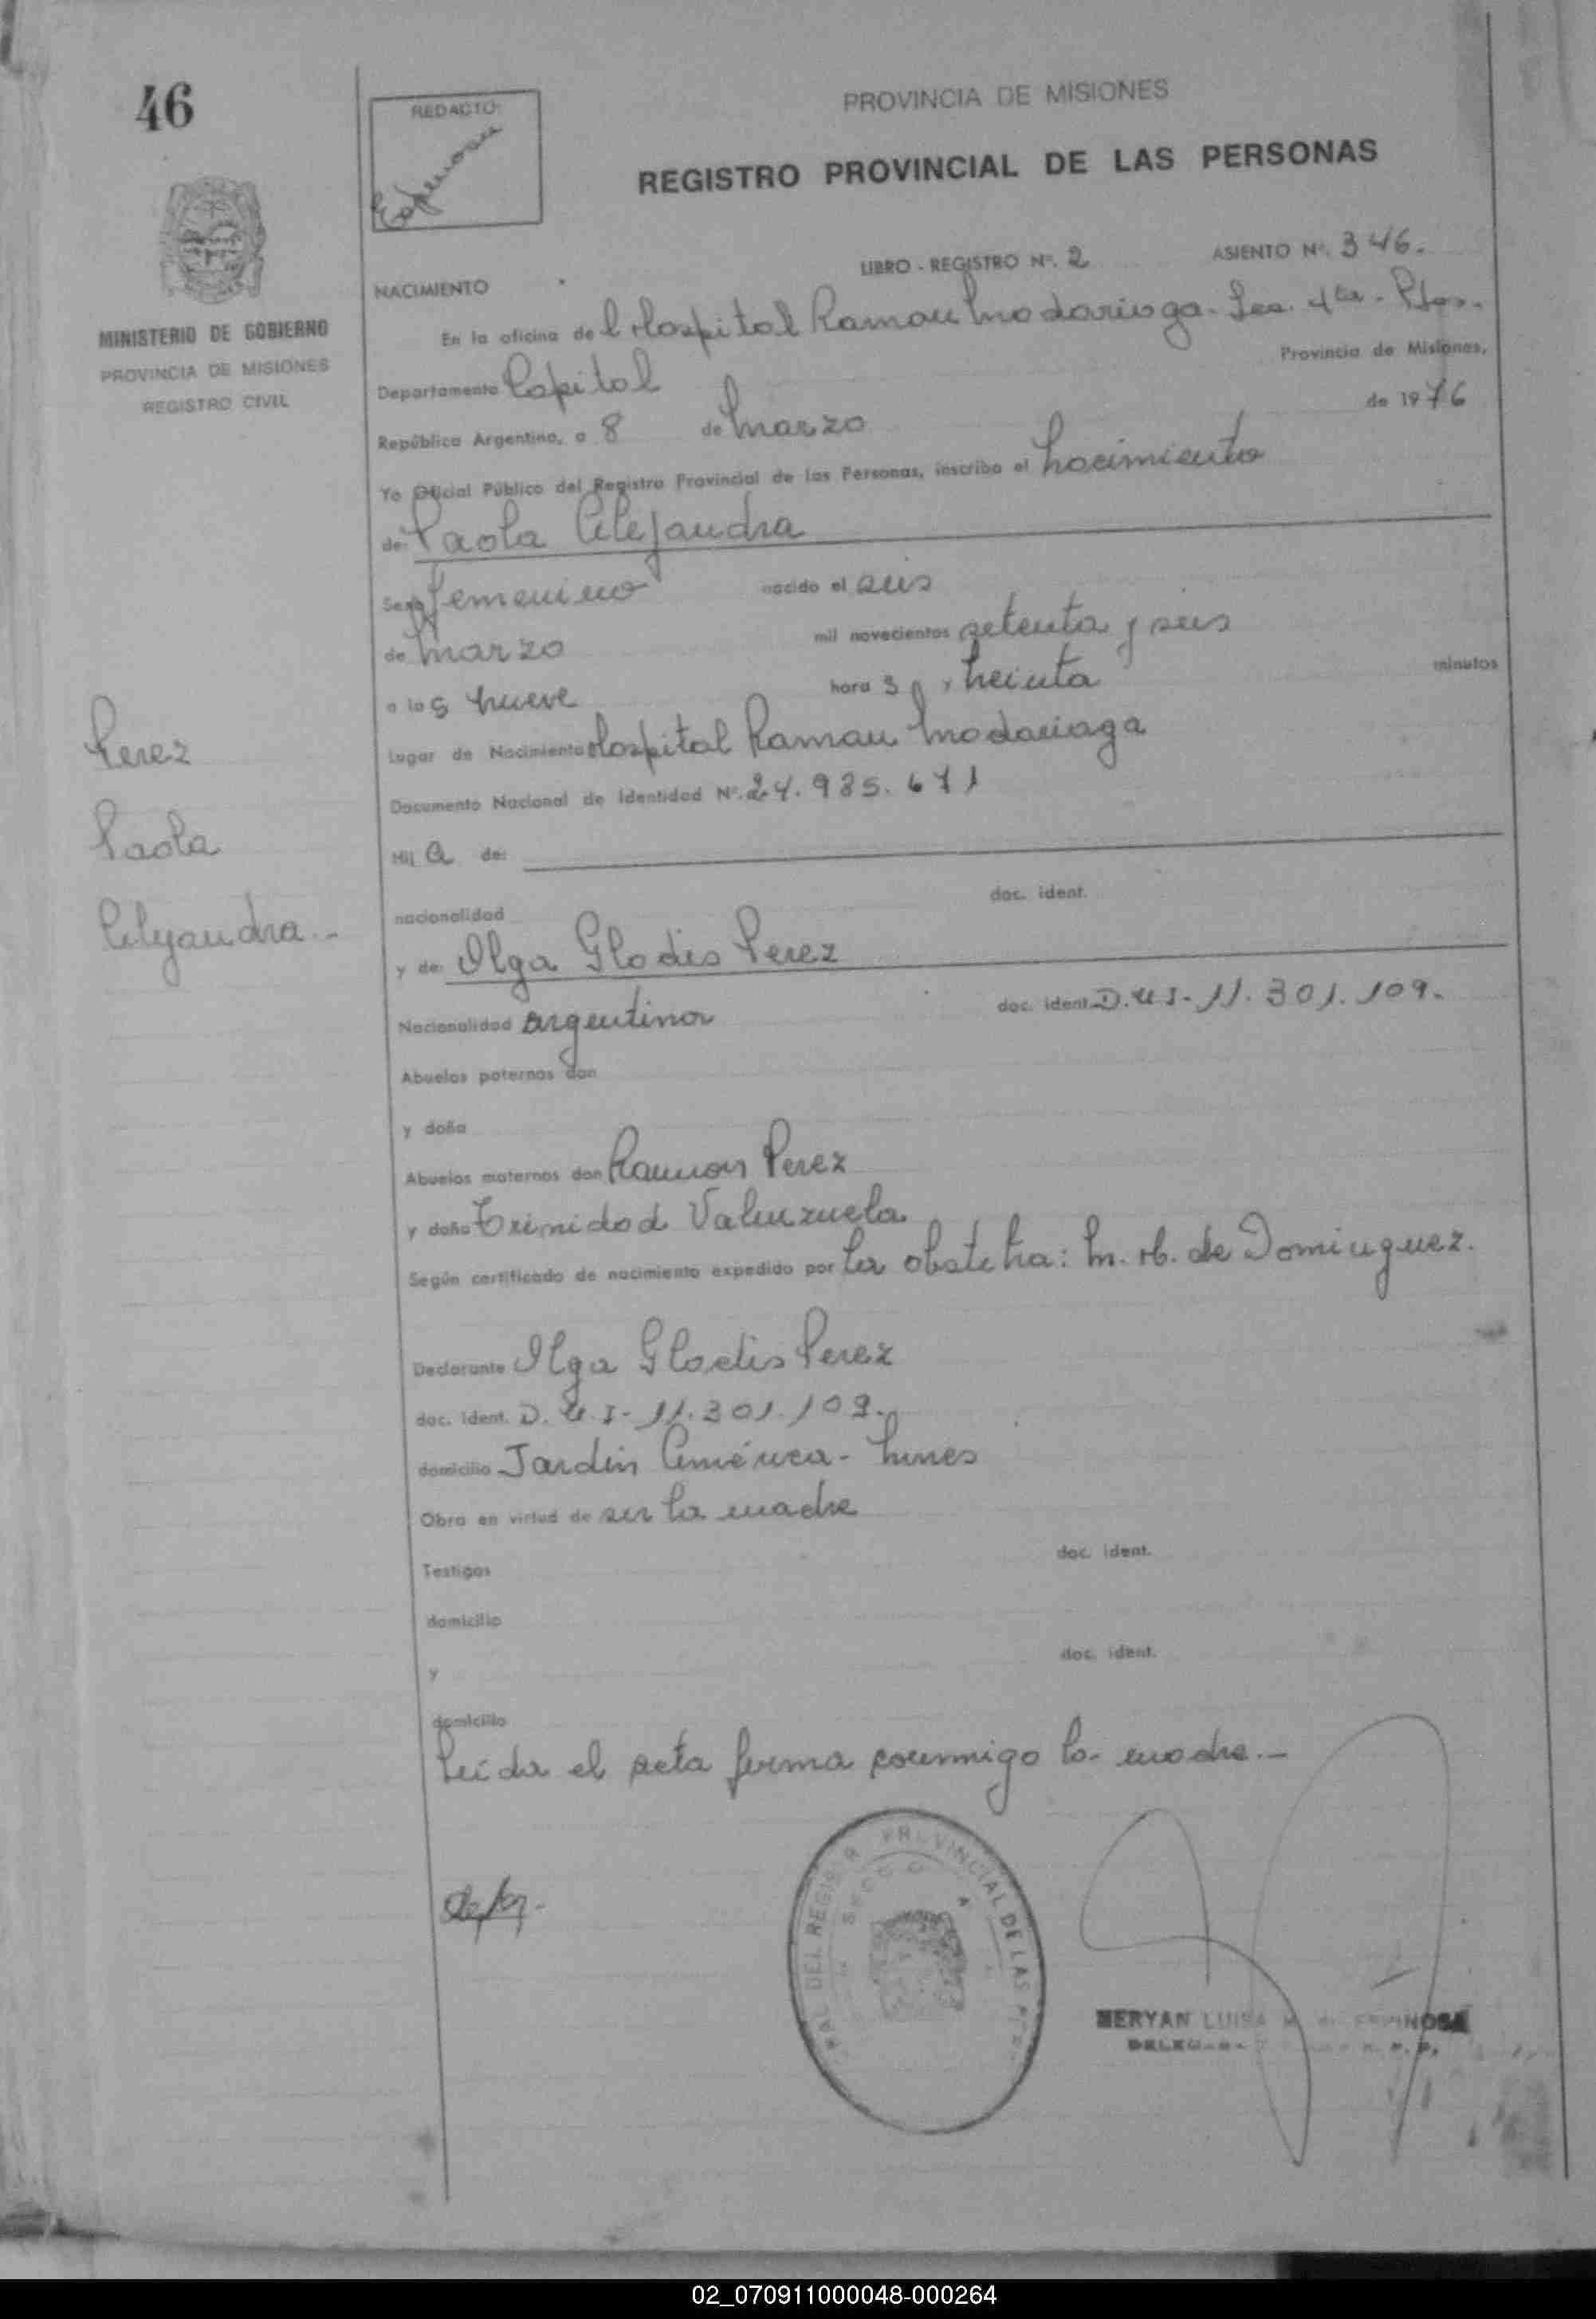 46
REDACTO:
PROVINCIA DE MISIONES
REGISTRO PROVINCIAL DE LAS PERSONAS
MINISTERIO DE GOBIERNO
PROVINCIA DE MISIONES
REGISTRO CIVIL
LIBRO - REGISTRO Nº. 2 ASIENTO Nº. 346.
NACIMIENTO
En la oficina de l Hospital Ramon Madariaga. Sec. 4ta. Pdas.
Departamento Capital Provincia de Misiones,
República Argentina, a 8 de Marzo de 1976
Yo Oficial Público del Registro Provincial de las Personas, inscribo el Nacimiento
de: Paola Alejandra
Sexo femenino nacido el seis
de Marzo mil novecientos setenta y seis
a las nueve hora s y treinta minutos
Lugar de Nacimiento Hospital Ramon Madariaga
Documento Nacional de Identidad Nº. 24.985.671
Perez
Paola
Alejandra.-
Hij a de:
nacionalidad doc. ident.
y de: Olga Gladis Perez
Nacionalidad argentina doc. ident. D.N.I- 11.301.109.
Abuelos paternos don
y doña
Abuelos maternos don Ramon Perez
y doña Trinidad Valenzuela
Según certificado de nacimiento expedido por la obstetra: M. H. de Dominguez.
Declarante Olga Gladis Perez
doc. ident. D.N.I- 11.301.109.
domicilio Jardin América - Mnes
Obra en virtud de ser la madre
Testigos doc. ident.
domicilio
y doc. ident.
domicilio
Leida el acta firma conmigo la madre.-
PROVINCIAL DE LAS
DEL REGIS
SECC
MERYAN LUISA M. de ESPINOSA
02_070911000048-000264